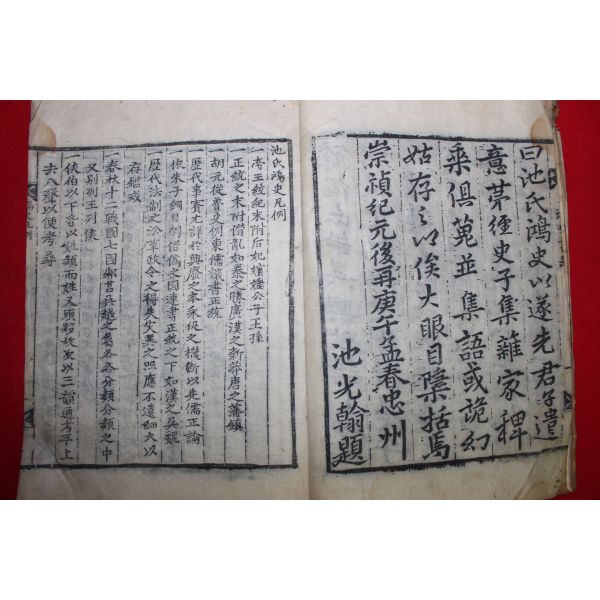 曰池氏鴻史以遂先君子遺
意苐經史子集雜家稗
乘俱蒐並集語或詭幻
姑存之以俟大眼目檃括焉
崇禎紀元後再庚午孟春忠州
池光翰題
池氏鴻史凡例
一李王紋紀末附后妃嬪嬙公子王孫
一正統之末附僭亂如秦之勝廣漢之新莽唐之藩鎮
一胡元從曹史例東儒議書正統
一歷代事實尤詳於興廢之本承促之機斷以先儒正論
一依朱子綱目例僭僞之國連書正統之下如漢之吳魏
一歷代法制之沿革政令之得失災異之照應不遺細大以
存鑑戒
一春秋十二戰國七國邾莒吳越之屬各各分類分類之中
又別列王列侯
一侯伯以下皆以姓類而姓又類彙放次以三韻通考平上
去入聲以便考尋